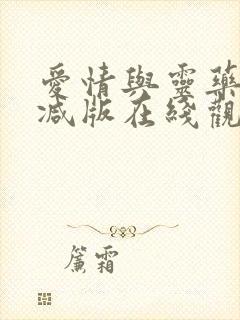 愛情與靈藥
減版在綫觀
簾霜